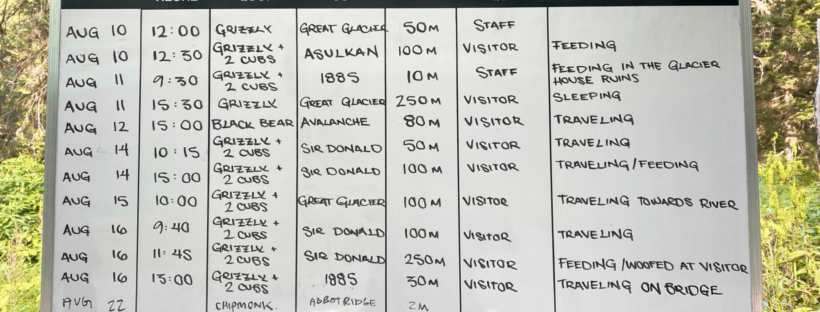 AUG 10 12:00 GRIZZLY GREAT GLACIER 50M STAFF
AUG 10 12:30 GRIZZLY + 2 CUBS ASULKAN 100M VISITOR FEEDING
AUG 11 9:30 GRIZZLY + 2 CUBS 1885 10M STAFF FEEDING IN THE GLACIER HOUSE RUINS
AUG 11 15:30 GRIZZLY GREAT GLACIER 250M VISITOR SLEEPING
AUG 12 15:00 BLACK BEAR AVALANCHE 80M VISITOR TRAVELING
AUG 14 10:15 GRIZZLY + 2 CUBS SIR DONALD 50M VISITOR TRAVELING
AUG 14 15:00 GRIZZLY + 2 CUBS SIR DONALD 100M VISITOR TRAVELING/FEEDING
AUG 15 10:00 GRIZZLY + 2 CUBS GREAT GLACIER 100M VISITOR TRAVELING TOWARDS RIVER
AUG 16 9:40 GRIZZLY + 2 CUBS SIR DONALD 100M VISITOR TRAVELING
AUG 16 11:45 GRIZZLY + 2 CUBS SIR DONALD 250M VISITOR FEEDING/WOOFED AT VISITOR
AUG 16 13:00 GRIZZLY + 2 CUBS 1885 30M VISITOR TRAVELING ON BRIDGE
AUG 22 CHIPMONK ABBOT RIDGE 2M